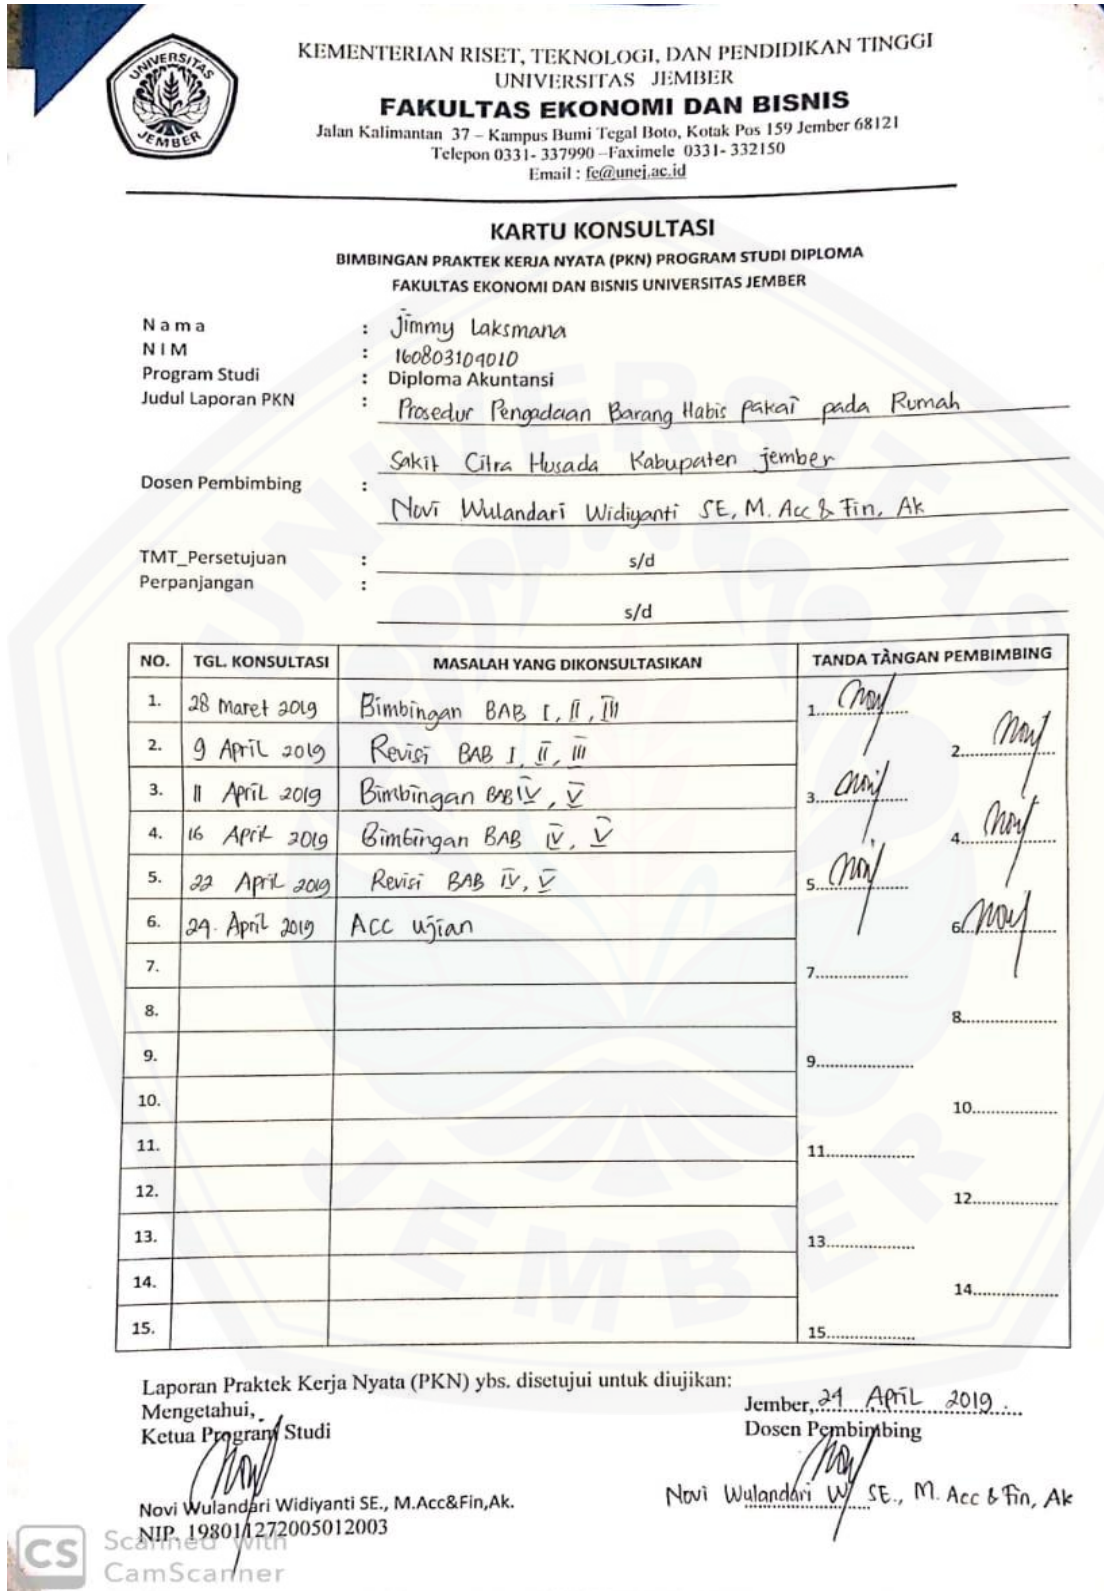 UNIVERSITAS
JEMBER
KEMENTERIAN RISET, TEKNOLOGI, DAN PENDIDIKAN TINGGI
UNIVERSITAS JEMBER
FAKULTAS EKONOMI DAN BISNIS
Jalan Kalimantan 37 – Kampus Bumi Tegal Boto, Kotak Pos 159 Jember 68121
Telepon 0331- 337990 –Faximele 0331- 332150
Email : fe@unej.ac.id
KARTU KONSULTASI
BIMBINGAN PRAKTEK KERJA NYATA (PKN) PROGRAM STUDI DIPLOMA
FAKULTAS EKONOMI DAN BISNIS UNIVERSITAS JEMBER
Nama : Jimmy Laksmana
NIM : 160803104010
Program Studi : Diploma Akuntansi
Judul Laporan PKN : Prosedur Pengadaan Barang Habis Pakai pada Rumah
Sakit Citra Husada Kabupaten Jember
Dosen Pembimbing : Novi Wulandari Widiyanti SE, M. Acc & Fin, Ak
TMT_Persetujuan : s/d
Perpanjangan : s/d
NO. TGL. KONSULTASI MASALAH YANG DIKONSULTASIKAN TANDA TANGAN PEMBIMBING
1. 28 Maret 2019 Bimbingan BAB I, II, III 1..................
2. 9 April 2019 Revisi BAB I, II, III 2..................
3. 11 April 2019 Bimbingan BAB IV, V 3..................
4. 16 April 2019 Bimbingan BAB IV, V 4..................
5. 22 April 2019 Revisi BAB IV, V 5..................
6. 24. April 2019 ACC ujian 6..................
7. 7..................
8. 8..................
9. 9..................
10. 10..................
11. 11..................
12. 12..................
13. 13..................
14. 14..................
15. 15..................
Laporan Praktek Kerja Nyata (PKN) ybs. disetujui untuk diujikan:
Jember, 24 April 2019
Mengetahui,
Ketua Program Studi
Dosen Pembimbing
Novi Wulandari Widiyanti SE., M.Acc&Fin,Ak.
NIP. 198011272005012003
Novi Wulandari W SE., M. Acc & Fin, Ak
CS Scanned with
CamScanner